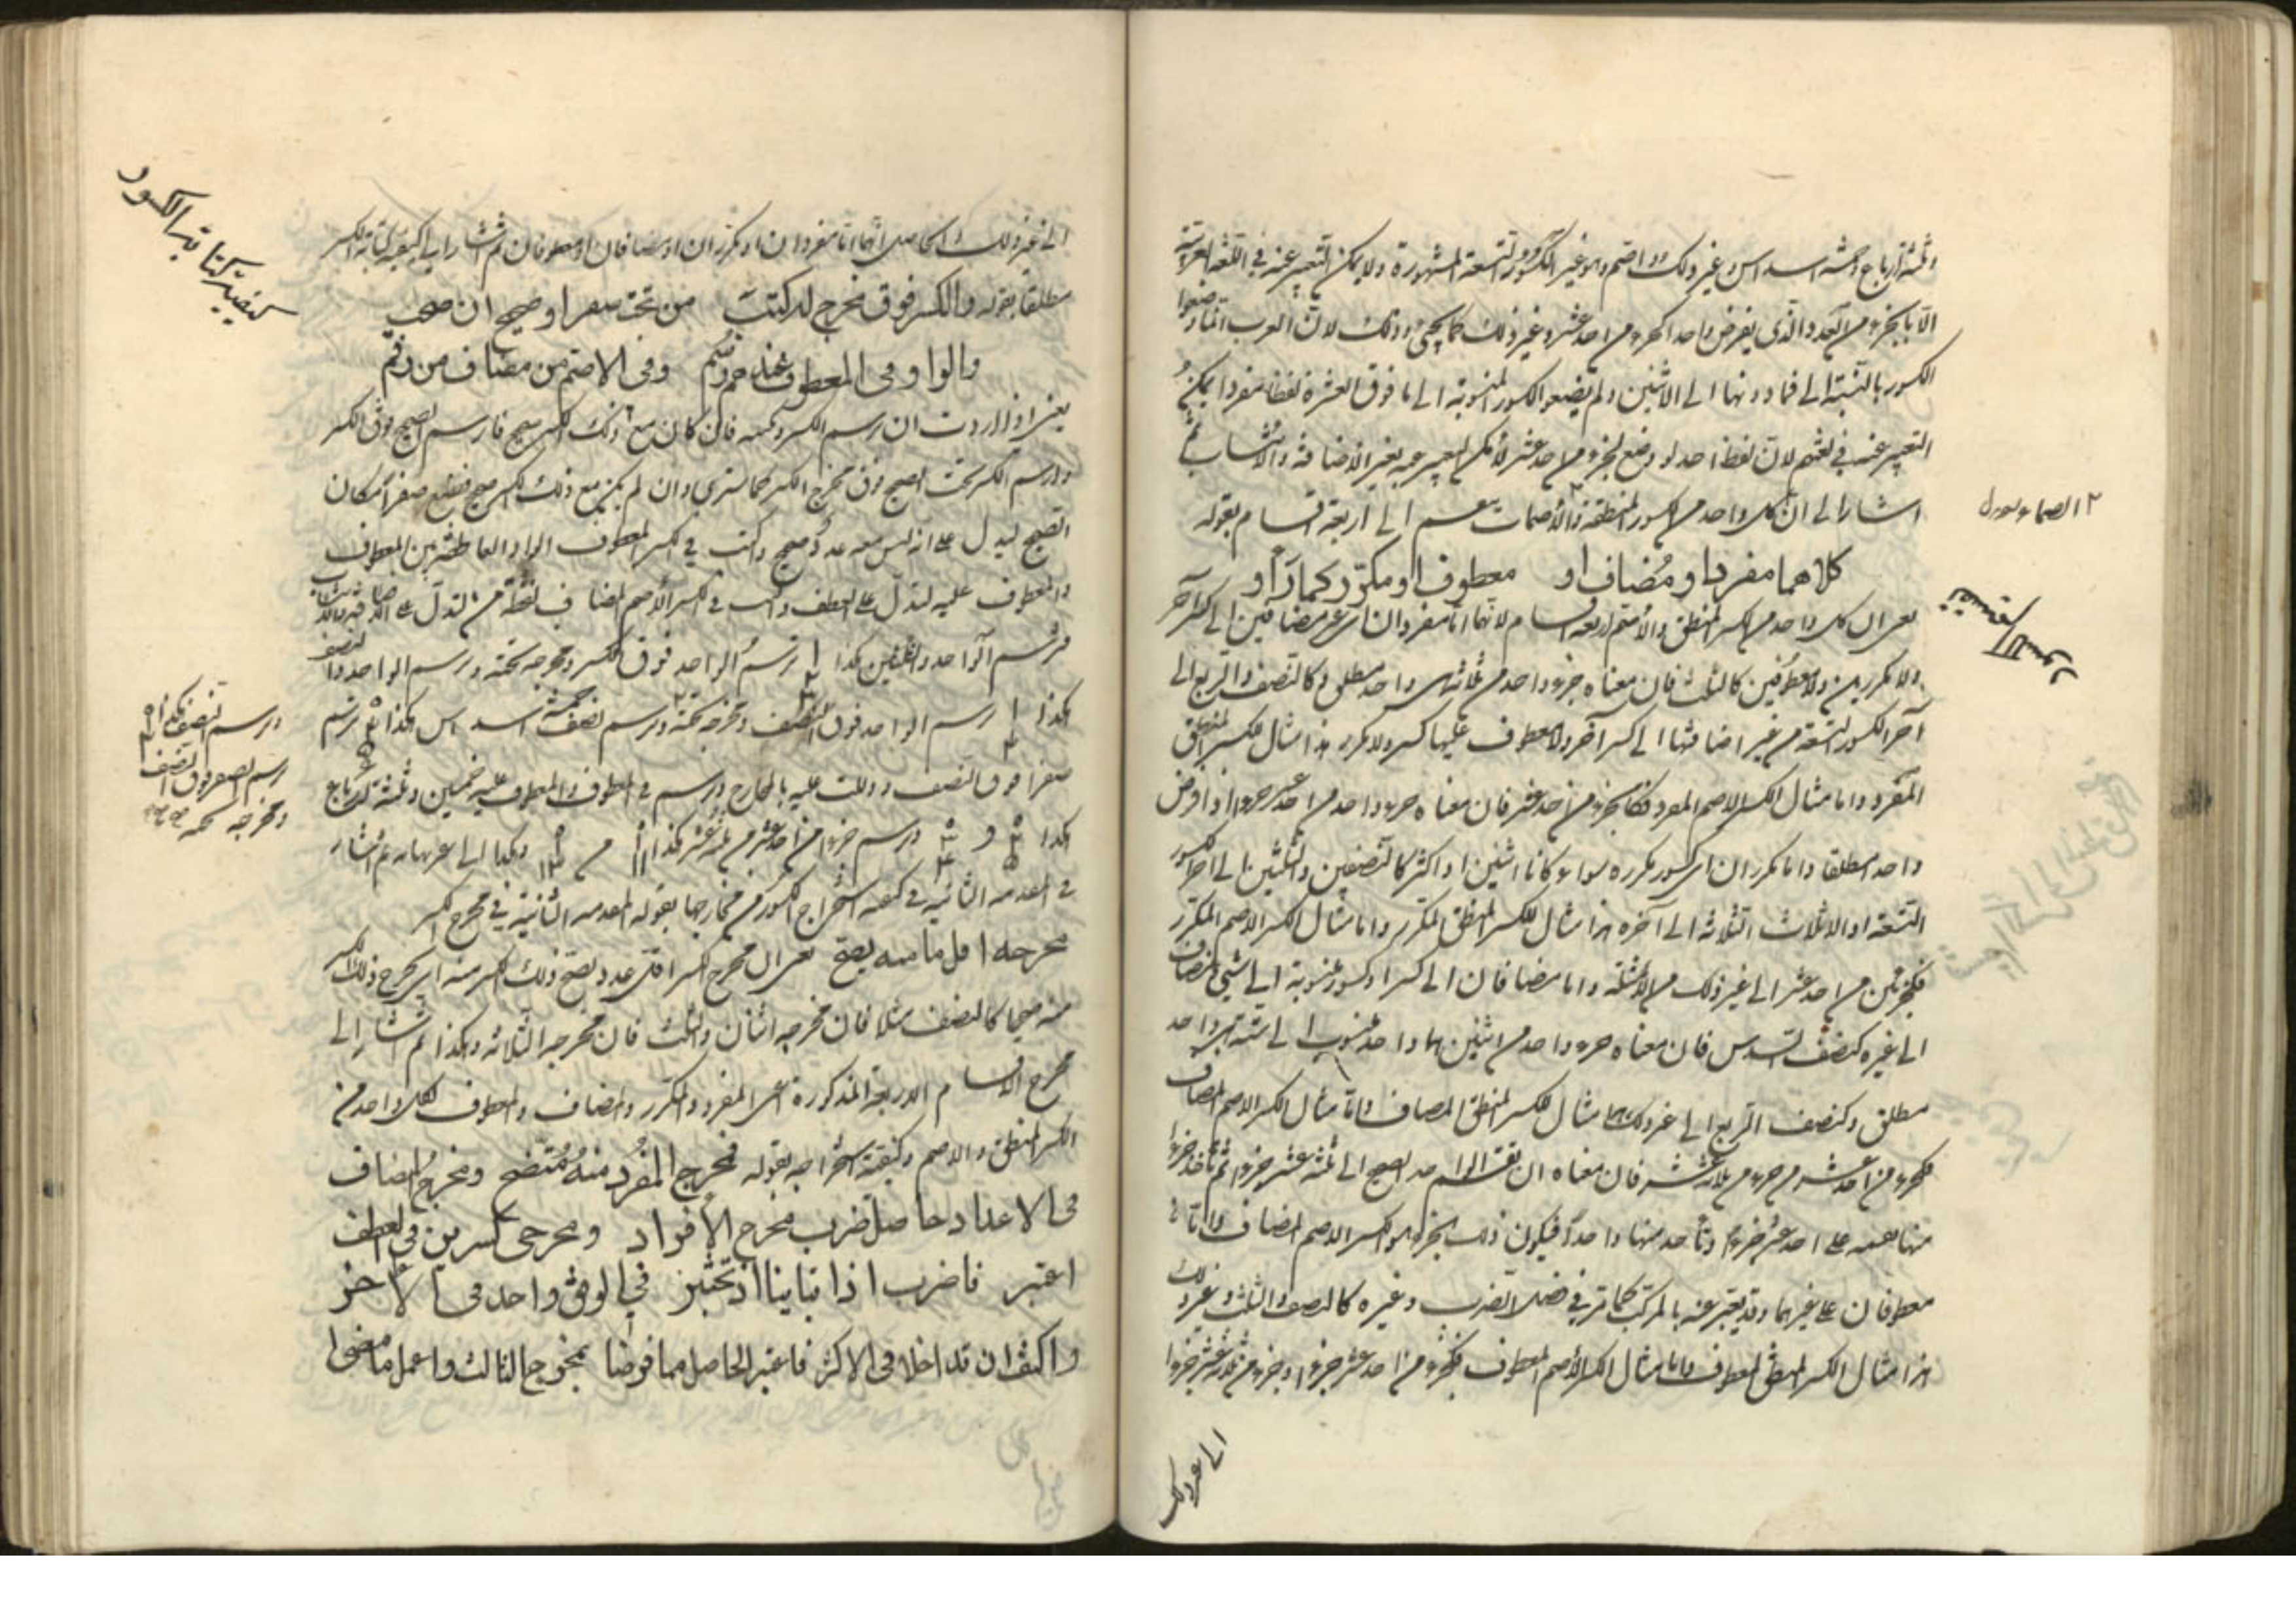 وثلثة ارباع وخمسة اسداس وغير ذلك واما اصم وهو غير الكسور التسعة المشهورة ولا يمكن التعبير عنه في اللغة العربية
الا بالجزء من العدد الذي يفرض واحدا كجزء من احد عشر وغير ذلك كما يجئ وذلك لان العرب انما وضعوا
الكسور بالنسبة الى فما دونها الى الاثنين ولم يضعوا الكسور المنسوبة الى ما فوق العشرة لفظا مفردا يمكن
التعبير عنه في لغتهم لان لفظ احد لو وضع لجزء من احد عشر لا يمكن التعبير عنه بغير الاضافة والانتساب ثم
اشار الى ان كل واحد من الكسور المنطقة والاصمات ينقسم الى اربعة اقسام بقوله
٢ الصماء
كلاهما مفردا ومضاف او معطوف او مكرر كما رآوا
يعني ان كل واحد من الكسر المنطق والاصم اربعة اقسام لانهما اما مفردان اي غير مضافين الى كسر آخر
ولا مكررين ولا معطوفين كالثلث فان معناه جزء واحد من ثلاثة هي واحد مطلق وكالنصف والربع الى
آخر الكسور التسعة من غير اضافتها الى كسر آخر ولا معطوف عليها كسر ولا مكرر هذا مثال الكسر المنطق
المفرد واما مثال الكسر الاصم المفرد فكجزء من احد عشر فان معناه جزء واحد من احد عشر جزءا اذا فرض
واحد مطلقا واما مكرران اي كسور مكررة سواء كانا اثنين او اكثر كالنصفين والثلثين الى آخر الكسور
التسعة او الاثلاث الثلاثة الى آخره هذا مثال الكسر المنطق المكرر واما مثال الكسر الاصم المكرر
فكجزئين من احد عشر الى غير ذلك من الامثلة واما مضافان الى كسر او كسور منسوبة الى شئ مضاف
الى غيره كنصف السدس فان معناه جزء واحد من اثنين هما واحد منسوب الى ستة هي واحد
مطلق وكنصف الربع الى غير ذلك هذا مثال الكسر المنطق المضاف واما مثال الكسر الاصم المضاف
فكجزء من احد عشر من جزء من ثلاثة عشر فان معناه ان نقسم الواحد الصحيح الى ثلثة عشر جزءا ثم تأخذ جزءا
منها نقسمه على احد عشر جزءا وتأخذ منها واحدا فيكون ذلك الجزء هو الكسر الاصم المضاف واما
معطوفان على غيرهما وقد يعبر عنه بالمركب كما مر في فصل الضرب وغيره كالنصف والثلث وغير ذلك
هذا مثال الكسر المنطق المعطوف واما مثال الكسر الاصم المعطوف فكجزء من احد عشر جزءا وجزء من ثلثة عشر جزءا
الى غير ذلك
الى غير ذلك والحاصل انهما اما مفردان او مكرران او مضافان او معطوفان ثم اشار الى كيفية كتابة الكسر
كيفية كتابة الكسور
مطلقا بقوله والكسر فوق مخرج له كتبت من تحت صفر او صحيح ان صحب
والواو في المعطوف عندهم رسم وفي الاصم من مضاف من رقم
يعني اذا اردت ان ترسم الكسر وتكتبه فان كان مع ذلك الكسر صحيح فارسم الصحيح فوق الكسر
وارسم الكسر تحت الصحيح فوق مخرج الكسر كما سترى وان لم يكن مع ذلك الكسر صحيح فتضع صفرا مكان
الصحيح ليدل على انه ليس معه عدد صحيح واكتب في الكسر المعطوف الواو العاطفة بين المعطوف
والمعطوف عليه لتدل على العطف واكتب في الكسر الاصم المضاف لفظة من لتدل على الاضافة
فترسم الواحد والثلثين كذا ترسم الواحد فوق الكسر ومخرجه تحته وترسم الواحد والنصف
هكذا ترسم الواحد فوق النصف ومخرجه تحته وترسم نصف خمسة اسداس هكذا ترسم
ورسم النصف هكذا
رسم الصفر فوق النصف
ومخرجه تحته
صفرا فوق النصف ودللت عليه بالمخارج وترسم في المعطوف والمعطوف عليه خمسين وثلثة ارباع
هكذا و وترسم جزءا من احد عشر من ثلثة عشر كذا من وهكذا الى غير نهاية ثم اشار
في المقدمة الثانية في كيفية استخراج الكسور من مخارجها بقوله المقدمة الثانية في مخرج الكسر
مخرجه اقل ما منه يصح يعني ان مخرج الكسر اقل عدد يصح ذلك الكسر منه اي يخرج ذلك الكسر
منه صحيحا كالنصف مثلا فان مخرجه اثنان والثلث فان مخرجه الثلاثة وهكذا ثم اشار الى
مخرج الاقسام الاربعة المذكورة اعني المفرد والمكرر والمضاف والمعطوف لكل واحد من
الكسر المنطق والاصم وكيفية استخراجه بقوله فمخرج المفرد منه متضح ومخرج المضاف
في الاعداد حاصل ضرب مخرج الافراد ومخرجى كسرين في العطف
اعتبر فاضرب اذا تباينا اذ تختبر في الوفق واحد في الاخر
واكتف ان تداخلا في الاكثر فاعتبر الحاصل مما فوضا بمخرج الثالث واعمل ما مضى